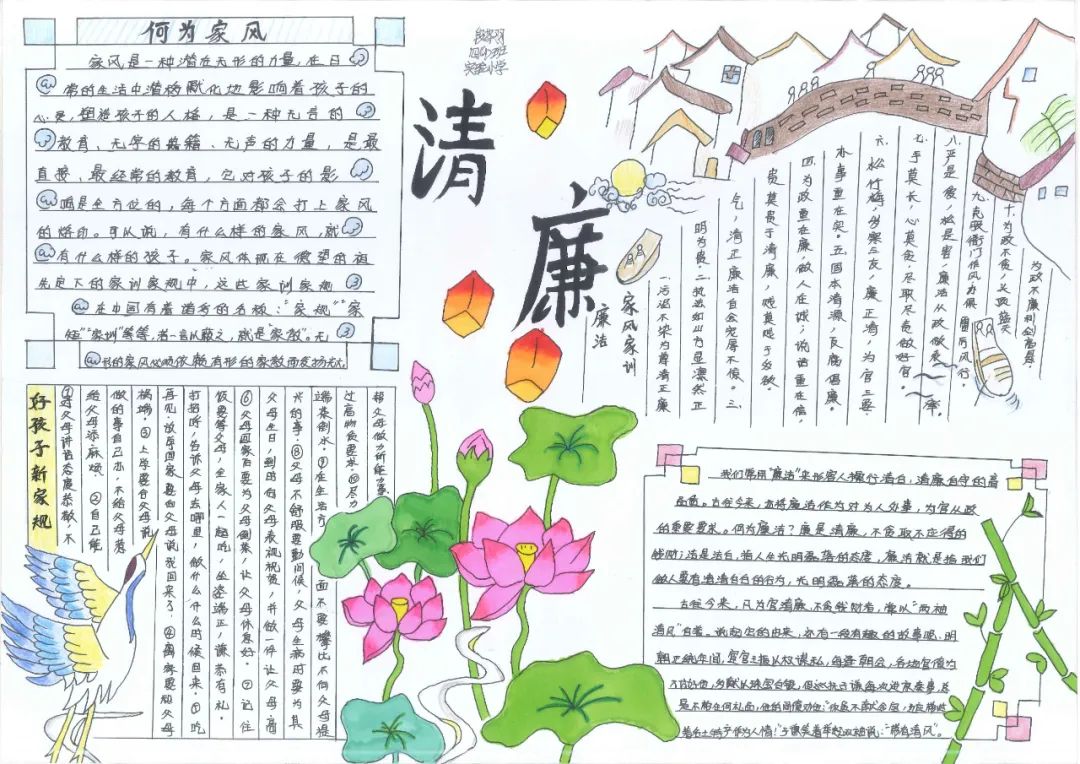 何为家风
家风是一种潜在无形的力量,在日
常的生活中潜移默化地影响着孩子的
心灵,塑造孩子的人格,是一种无言的
教育、无字的典籍、无声的力量,是最
直接、最经常的教育,它对孩子的影
响是全方位的,每个方面都会打上家风
的烙印。可以说,有什么样的家风,就
有什么样的孩子。家风体现在
先定下的家训家规中,这些家训家规
在中国有着诸多的名称:“家规”“家
矩”“家训”等等,若一言以蔽之,就是“家教”。无
形的家风必须依赖有形的家教而发扬
实验小学
清廉
家风家训
廉洁
一、污泥不染为尊清正廉
明为贵。二、执法如山方显凛然正
气,清正廉洁自会宽厚不俊。三、
贵莫贵于清廉,贱莫贱于多欲。
四、为政重在廉,做人在诚;说话重在信,
本事重在实。五、固本清源,反腐倡廉。
六、松竹梅,岁寒三友,廉正清,为官三要
七、手莫长,心莫贪,尽职尽责做好官。
八、严是爱,松是害,廉洁从政做表率。
九、克服衙门作风,力保雷厉风行。
十、为政不贪
为政不廉
好孩子新家规
①对父母讲话态度恭敬,不
给父母添麻烦。②自己能
做的事自己办,不给父母惹
祸端。③上学要告父母说
再见,放学回家要向父母说我回来了。④离家要和父母
打招呼,告诉父母去哪里,做什么什么时候回来。⑤吃
饭要等父母,全家人一起吃,坐姿端正,谦恭有礼。
⑥父母回家后要为父母倒茶,让父母休息好。⑦记住
父母生日,到时向父母表祝贺,并做一件让父母高
兴的事。⑧父母不舒服要勤问候,父母生病时要为其
端茶倒水。⑨在生活方面不要攀比不向父母提
过高物质要求。⑩尽力
帮父母做力所能及事
我们常用“廉洁”来形容人操行清白,清廉自守的高
品质。古往今来,亦将廉洁作为对为人处事,为官从政
的重要要求。何为廉洁?廉是清廉,不贪取不应得的
钱财;洁是洁白,指人生光明磊落的态度,廉洁就是指我们
做人要有清清白白的行为,光明磊落的态度。
古往今来,凡为官清廉,不贪钱财者,常以“两袖
清风”自誉。说起它的由来,还有一段有趣的故事呢。明
朝正统年间,宦官王振以权谋私,每逢朝会,各地官僚为
了讨好他,多献以珠宝白银,但巡抚于谦每次进京奏事,总
是不带任何礼品,他的同僚劝他:“你虽不献金宝,
着点土特产作为人情!”于谦笑着举起双袖说:“带有清风”。